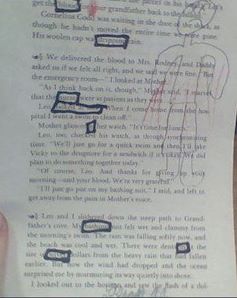 get the blood
Cornelius Codd was waiting in the dory at the dock, as
though he hadn't moved the entire time we were gone.
His woolen cap was
We delivered the blood to Mrs. Rodney, and Daddy
asked us if we felt all right, and we said we were fine. "But
the emergency room—" I looked at Mother.
"As I think back on it, though," Mother said, "I marvel
that this were as patient as they were
I come home from the hos-
pital I want a swim to clean off."
Mother glanced at her watch. "It's time for lunch."
Leo, too, checked his watch, as though
time. "We'll just go for a quick swim and then I'll take
Vicky to the drugstore for a sandwich if it's okay. We did
plan to do something together today."
"Of course, Leo. And thanks for giving up your
morning—and your blood. We're very grateful."
"I'll just go put on my bathing suit," I said, and left to
get away from the pain in Mother's voice.
Leo and I slithered down the steep path to Grand-
father's cove. My bathing suit felt wet and clammy from
the morning's swim. The rain was falling softly now, and
the beach was cool and wet. There were dents the
size of dollars from the heavy rain that had fallen
earlier. But now the wind had dropped and the ocean
surprised me by murmuring its way quietly into shore.
I looked out to the horizon, and saw the flash of a dol-